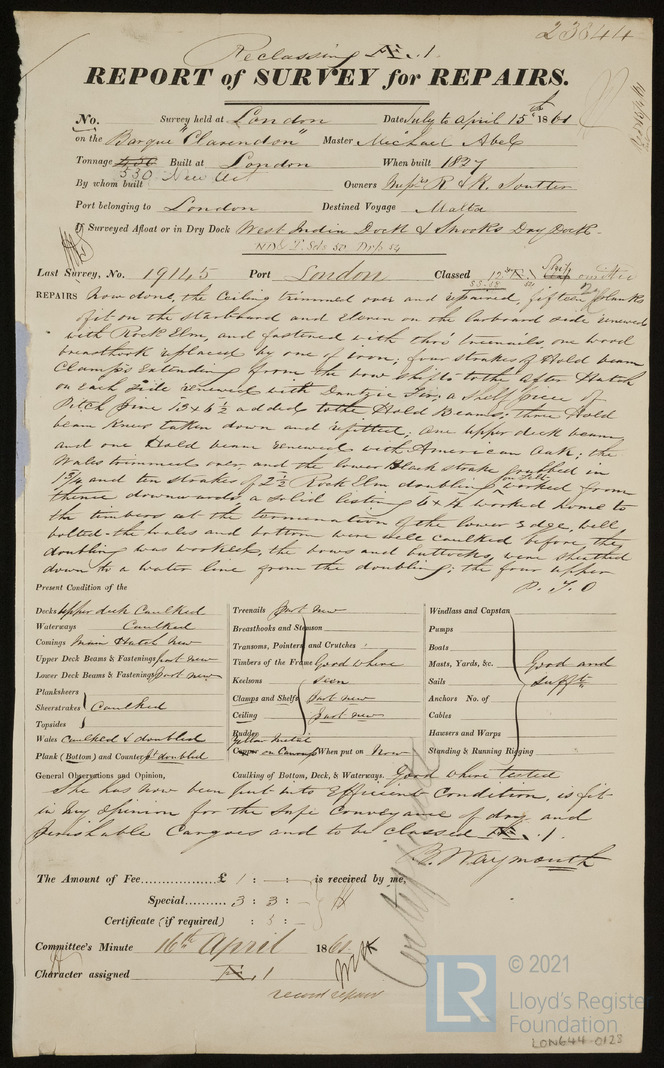 23844
Reclassing Æ.1.
REPORT of SURVEY for REPAIRS.
No. Survey held at London Date July to April 15th 1861
on the Barque "Clarendon" Master Michael Abel
Tonnage 450 Built at London When built 1827
530 New
By whom built Owners Messrs R & R. Soutter
Port belonging to London Destined Voyage Malta
If Surveyed Afloat or in Dry Dock West India Dock & Snooks Dry Dock
Last Survey, No. 19145 Port London Classed 12
REPAIRS Now done, the Ceiling trimmed over and repaired, fifteen planks
of it on the starboard and eleven on the larboard side renewed
with Rock Elm, and fastened with thro' treenails, one wood
breasthook replaced by one of iron; four strakes of Hold beam
Clamps extending from the bow shifts to the after Hatch
on each side renewed with Dantzic Fir, a Shelf piece of
Pitch Pine 13 x 6½ added to the Hold Beams; three Hold
beam Knees taken down and refitted; one upper deck beam
and one Hold beam renewed with American Oak; the
Wales trimmed over and the lower Black strake in
1¾ and ten strakes of 2½ Rock Elm doubling on felt worked from
thence downwards, a solid listing 6 x 4 worked home to
the timbers at the termination of the lower edge, well
bolted - the wales and bottom were well caulked before the
doubling was worked, the bows and buttocks, were sheathed
down to a water line from the doubling; the four upper
P. T. O
Present Condition of the
Decks Upper deck Caulked
Waterways Caulked
Comings Main Hatch New
Upper Deck Beams & Fastenings part new
Lower Deck Beams & Fastenings part new
Planksheers
Sheerstrakes Caulked
Topsides
Wales Caulked & doubled
Plank (Bottom) and Counter pt doubled
Treenails part new
Breasthooks and Stemson
Transoms, Pointers and Crutches
Timbers of the Frame Good where
Keelsons seen
Clamps and Shelfs part new
Ceiling part new
Rudder
Yellow Metal
Copper on Canvas When put on Now
Windlass and Capstan
Pumps
Boats
Masts, Yards, &c. Good and
Sails sufft
Anchors No. of
Cables
Hawsers and Warps
Standing & Running Rigging
General Observations and Opinion, Caulking of Bottom, Deck, & Waterways. Good where tested
She has now been put into Efficient Condition, is fit
in my opinion for the safe Conveyance of dry and
perishable Cargoes and to be classed Æ.1.
Waymouth
The Amount of Fee £ 1 : - : - is received by me,
Special 3 : 3 : -
Certificate (if required) : 5 : -
Committee's Minute 16th April 1861
Character assigned Æ.1
record repair
© 2021
LR
Lloyd's Register
Foundation
LON644-0123